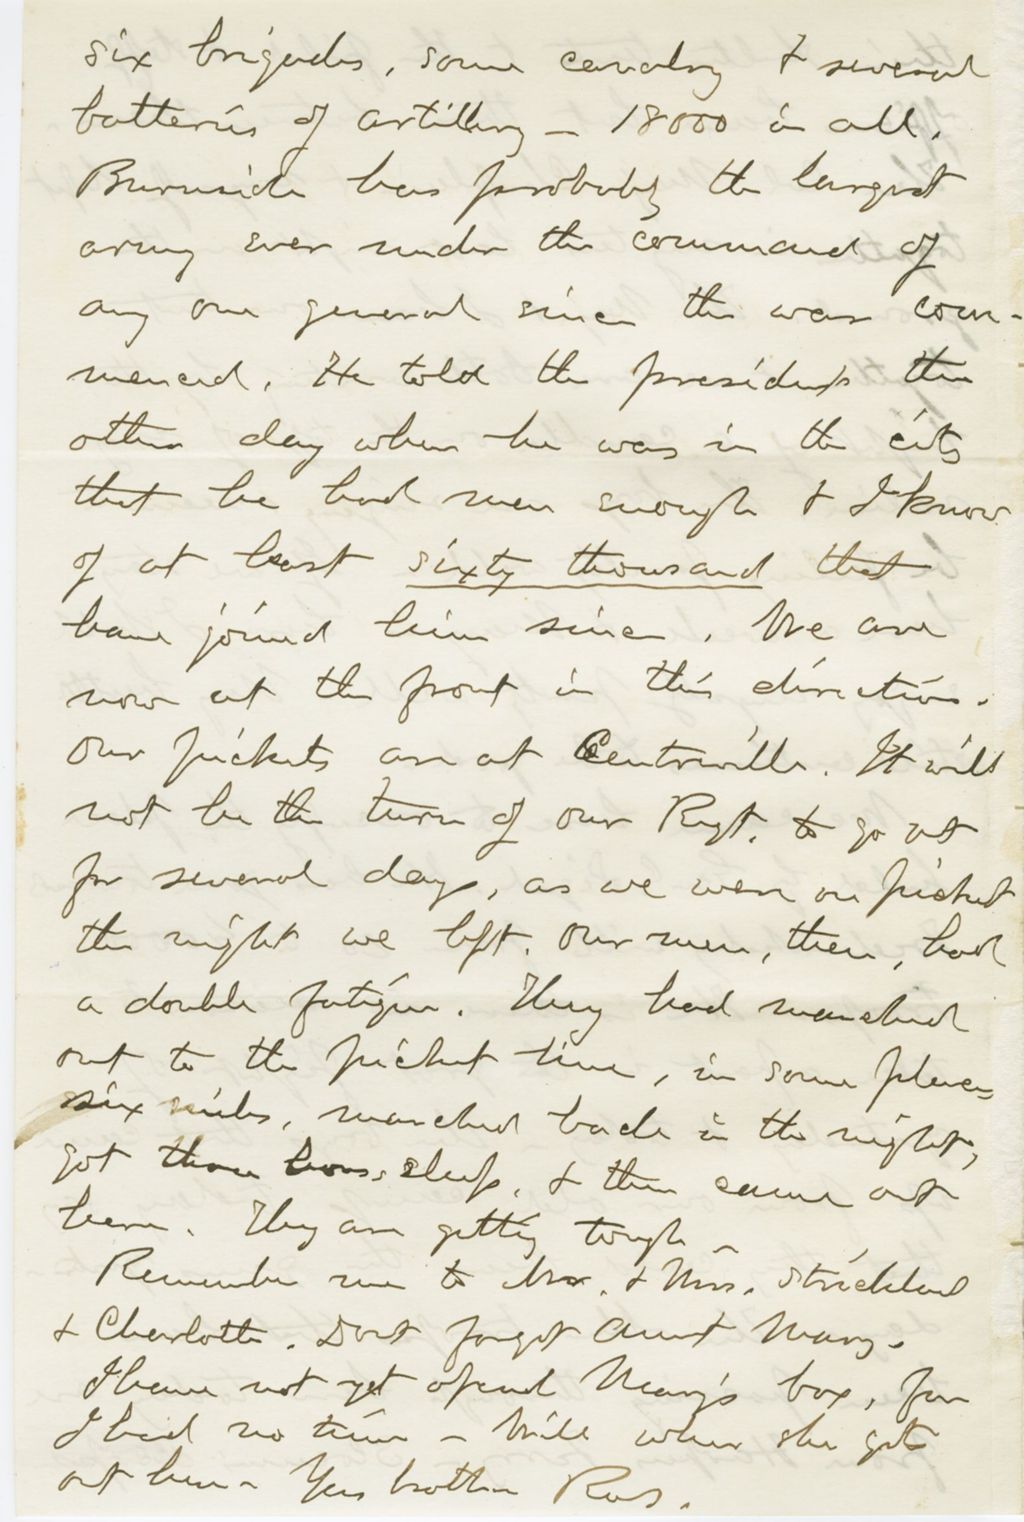 six brigades, some cavalry & several
batteries of artillery — 18000 in all.
Burnside has probably the largest
army ever under the command of
any one general since the war com-
menced. He told the president the
other day when he was in the city
that he had men enough & I know
of at least sixty thousand that
have joined him since. We are
now at the front in this direction.
Our pickets are at Centreville. It will
not be the turn of our Regt. to go out
for several days, as we were on picket
the night we left. Our men, then, had
a double fatigue. They had marched
out to the picket line, in some places
six miles, marched back in the night,
got three hours sleep, & then came out
here. They are getting tough —
Remember me to Mr. & Mrs. Strickland
& Charlotte. Dont forget Aunt Mary.
I have not yet opened Mary's box, for
I had no time — Will when she gets
out here — Your brother